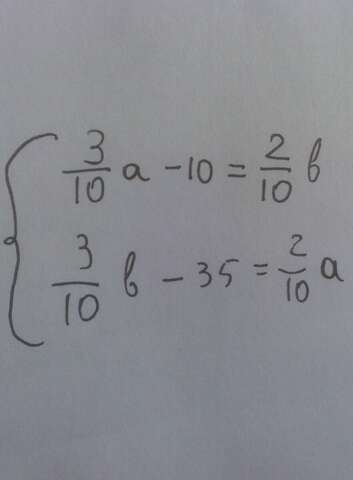 3/10 a - 10 = 2/10 b
3/10 b - 35 = 2/10 a